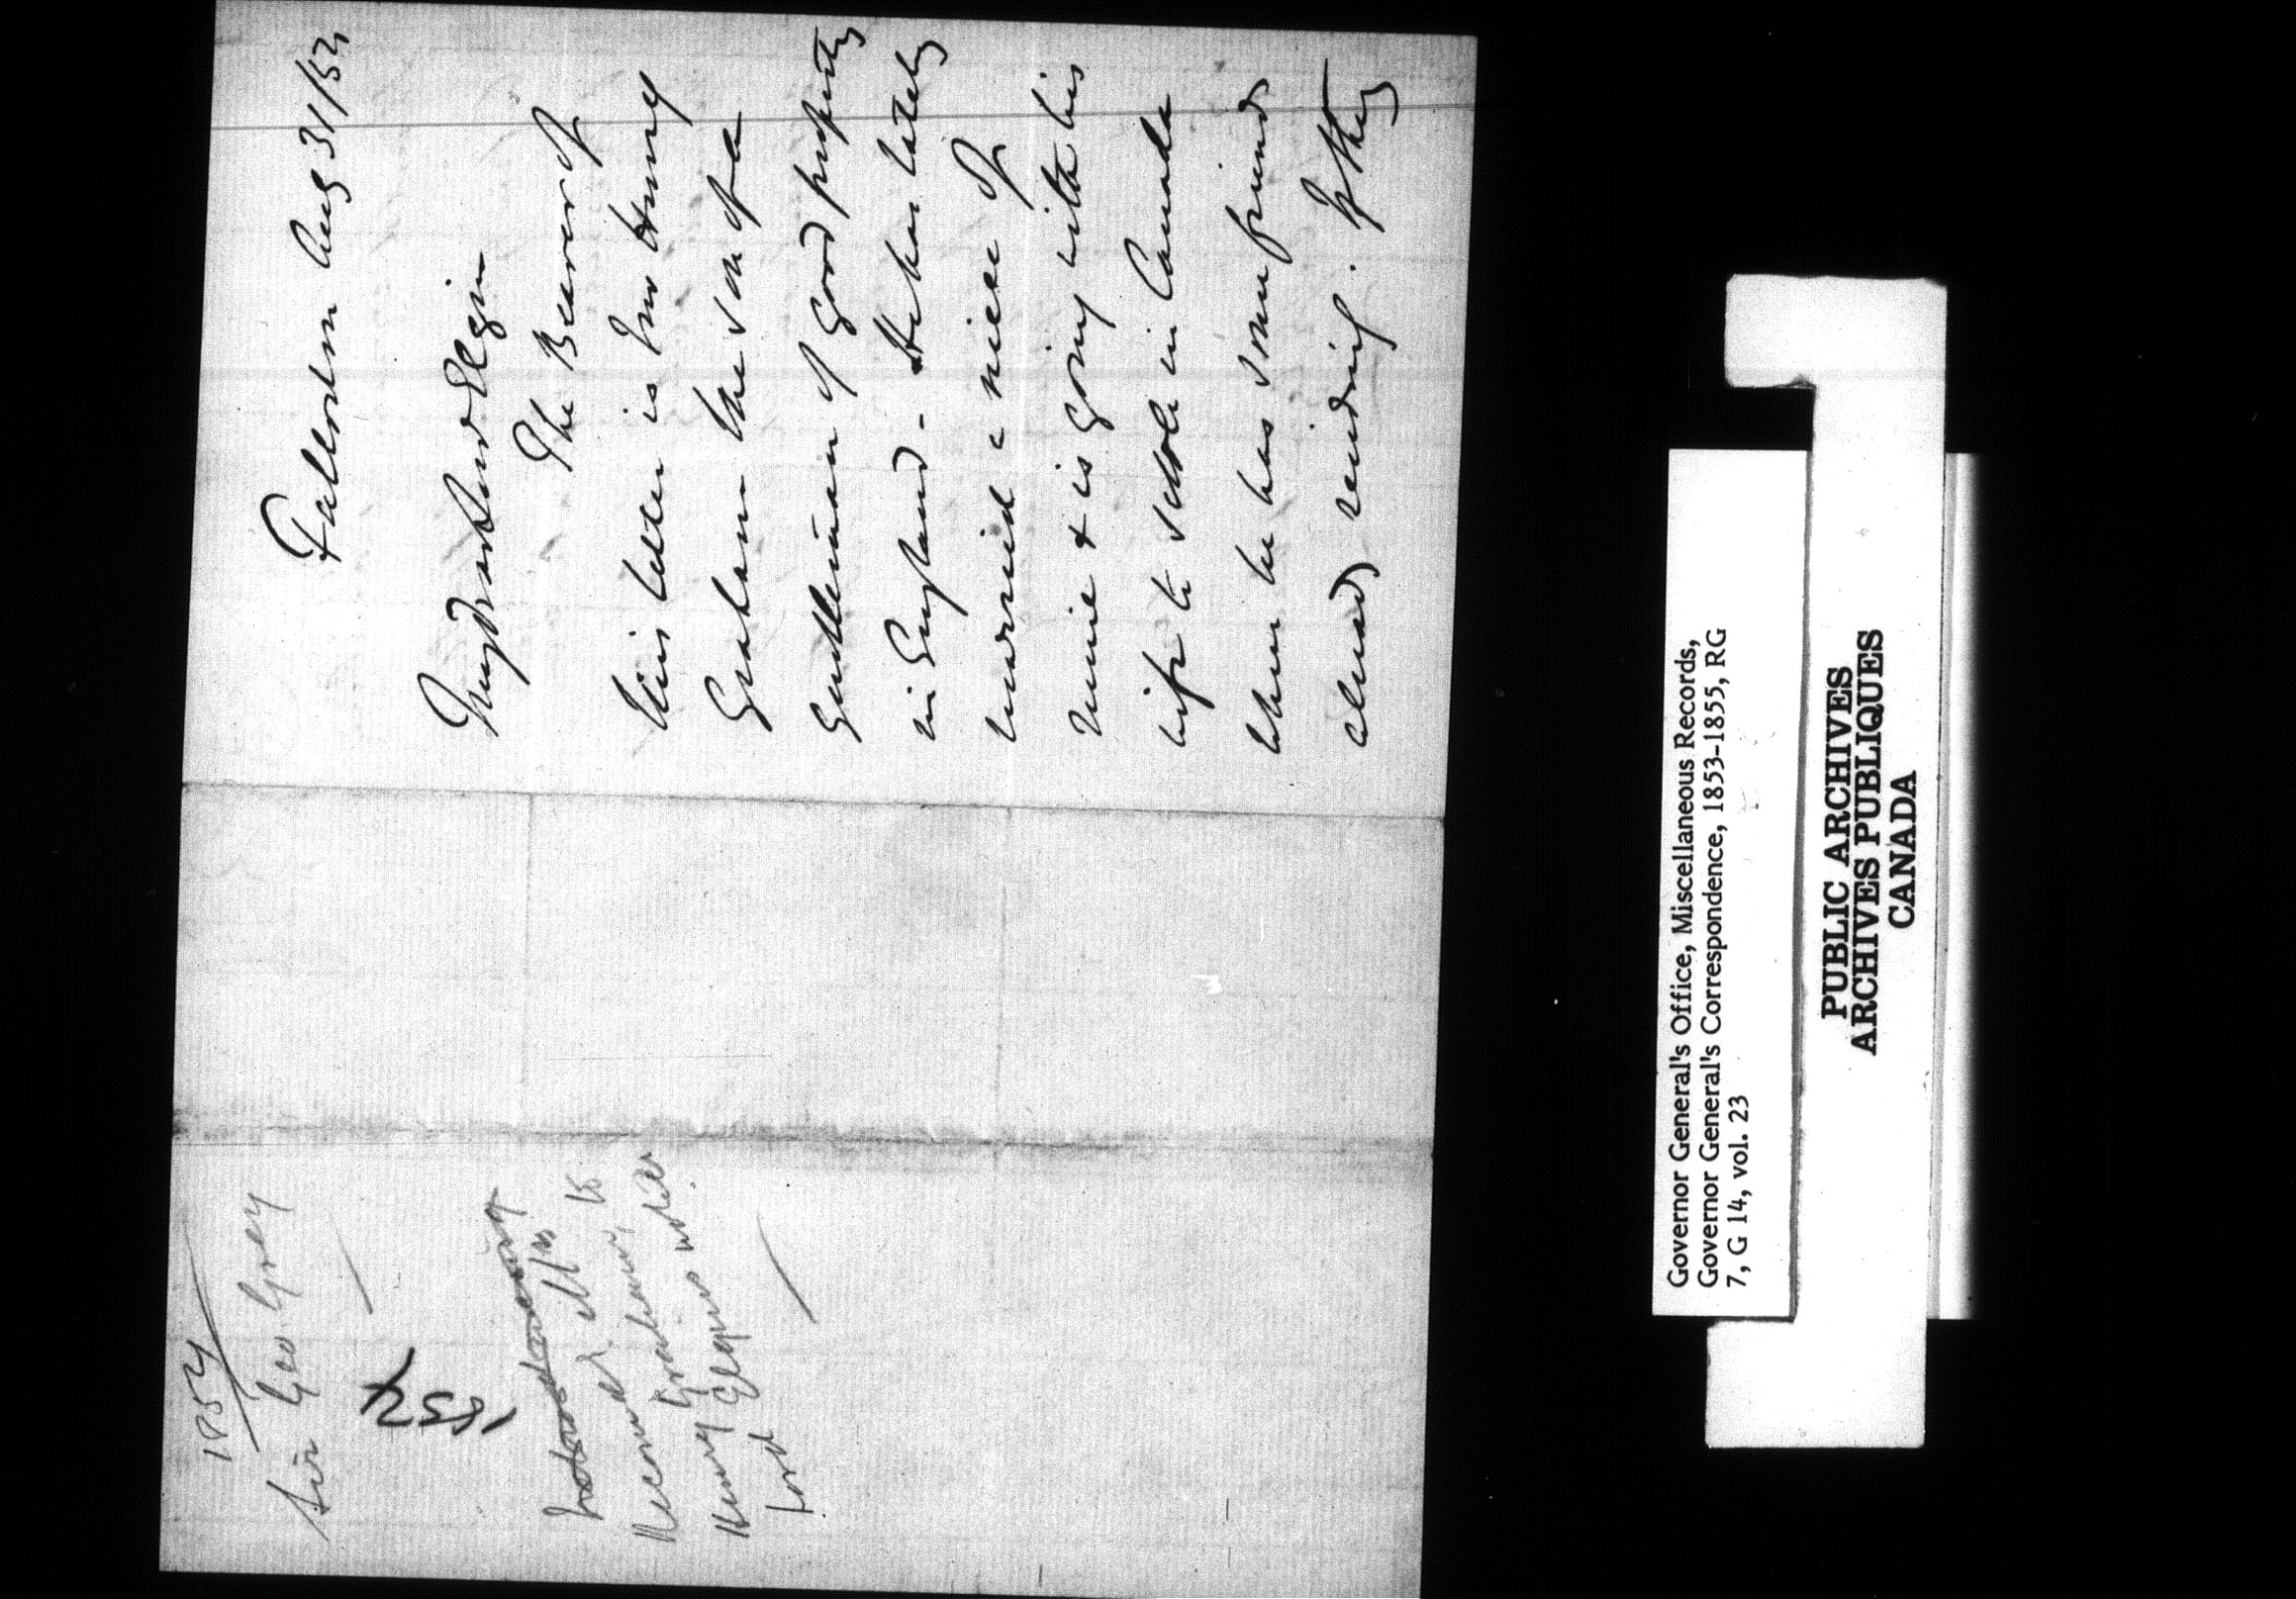 Falloden Aug 31/52
My dear Lord Elgin
The Bearer of
this letter is Mr Henry
Graham the son of a
Gentleman of good property
in England - He has lately
married a niece of
mine & is going with his
wife to settle in Canada
where he has some friends
already residing. If they
1854
Sir Geo Grey
1852
Recommends
Henry Graham to
Lord Elgin's notice
Governor General's Office, Miscellaneous Records,
Governor General's Correspondence, 1853-1855, RG
7, G 14, vol. 23
PUBLIC ARCHIVES
ARCHIVES PUBLIQUES
CANADA